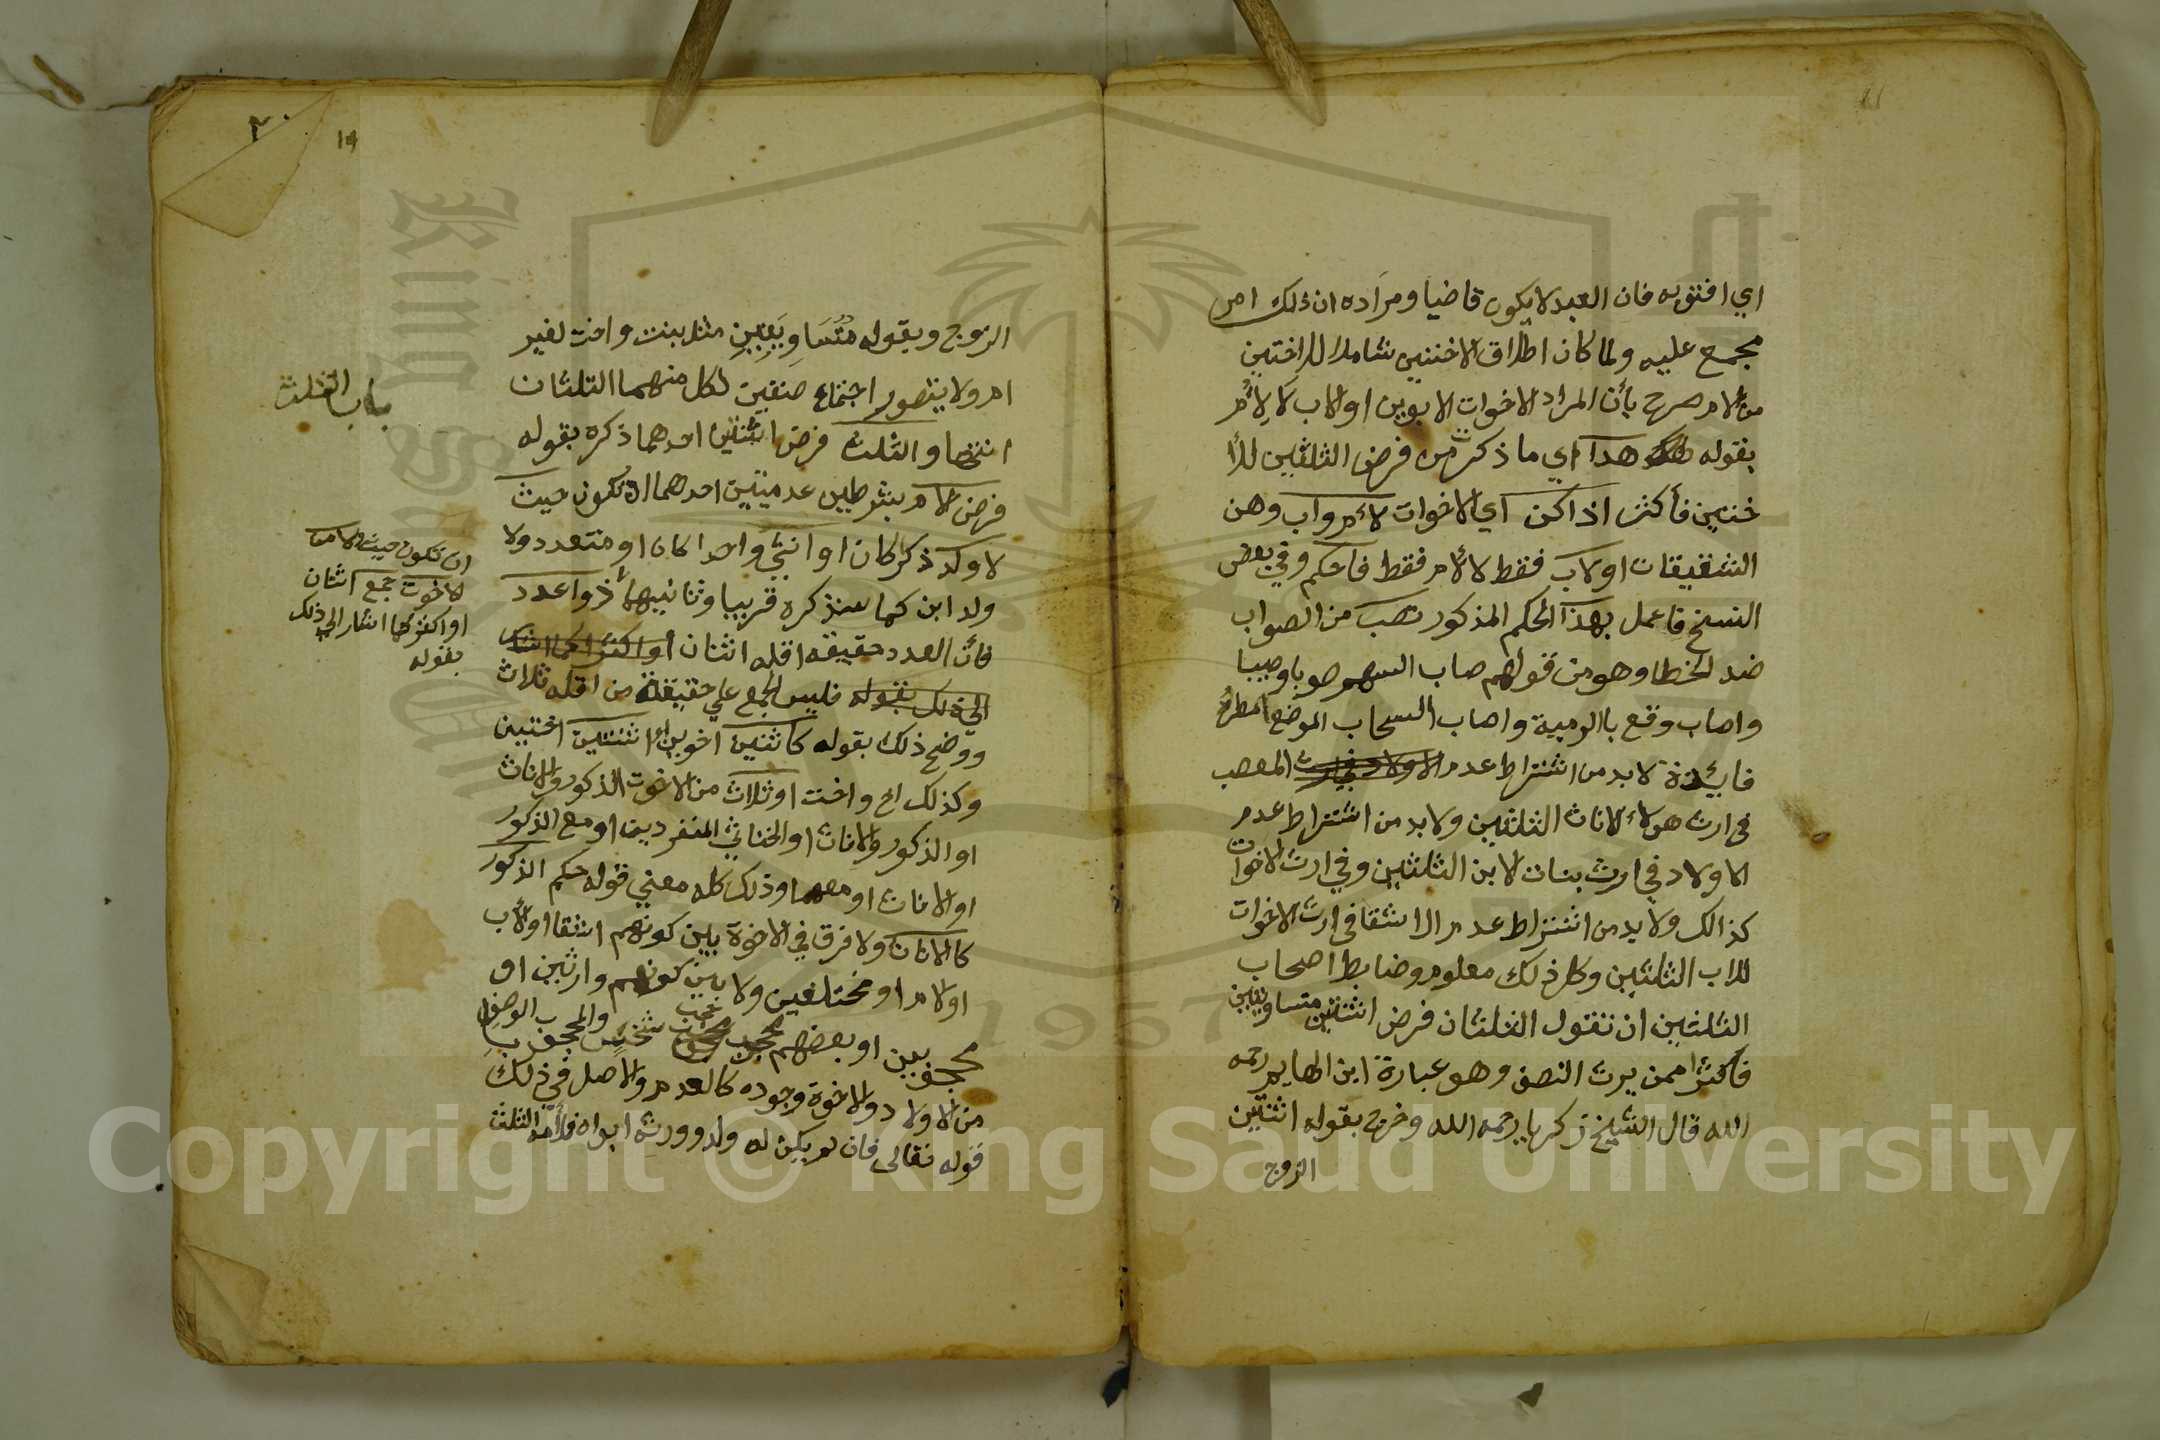 اي افتو به فان العبد لا يكون قاضيا ومراده ان ذلك امر
مجمع عليه ولما كان اطلاق الاختين شاملا للاختين
من الام صرح بأن المراد الاخوات لابوين او لاب لا لِأُم
بقوله هذا اي ما ذكر من فرض الثلثين للأ
ختين فأكثر اذا كن اي الاخوات لأم واب وهن
الشقيقات او لاب فقط لا لأم فقط فاحكم وفي بعض
النسخ فاعمل بهذا الحكم المذكور تصب من الصواب
ضد الخطا وهو من قولهم صاب السهم صوبا وصيبا
واصاب وقع بالرمية واصاب السحاب الموضع امطره
فايدة لا بد من اشتراط عدم الاولاد في ارث المعصب
في ارث هولاء الاناث الثلثين ولا بد من اشتراط عدم
الاولاد في ارث بنات الابن الثلثين وفي ارث الاخوات
كذالك ولا بد من اشتراط عدم الاشقا في ارث الاخوات
للاب الثلثين وكل ذلك معلوم وضابط اصحاب
الثلثين ان تقول الثلثان فرض اثنتين متساويتين
فأكثر ممن يرث النصف وهو عبارة ابن الهايم رحمه
الله قال الشيخ زكريا رحمه الله وخرج بقوله اثنتين
الزوج
٢٠
١٩
الزوج وبقوله مُتَسَاوِيَتَيْنِ مثل بنت واخت لغير
ام ولا يتصور اجتماع صنفين لكل منهما الثلثان
انتهى والثلث فرض اثنين احدهما ذكره بقوله
فرض الام بشرطين عدميين احدهما ان تكون حيث
لا ولد ذكرا كان او انثى واحدا كان او متعدد ولا
ولد ابن كما سنذكره قريبا وثانيهما ذوا عدد
فأن العدد حقيقه اقله اثنان او اكثر كما اشار
الى ذلك بقوله فليس الجمع على حقيقته من اقله ثلاث
ووضح ذلك بقوله كاثنين اخوين او اثنتين اختين
وكذلك اخ واخت او ثلاث من الاخوت الذكور والاناث
او الذكور والاناث او الخناثي المنفردين او مع الذكور
او الاناث او معهما وذلك كله معني قوله حكم الذكور
كالاناث ولا فرق في الاخوة بين كونهم اشقا او لأب
او لام او مختلفين ولا بين كونهم وارثين او
محجوبين او بعضهم محجوب حجب شخص والمحجوب بالوصف
من الاولاد والاخوة وجوده كالعدم والاصل في ذلك
قوله تعالى فان لم يكن له ولد وورثه ابواه فلأمه الثلث
باب الثلث
ان تكون حيث لا من
الاخوت جمع اثنان
او اكثر كما اشار الى ذلك
بقوله
King Saud University
1957
Copyright © King Saud University